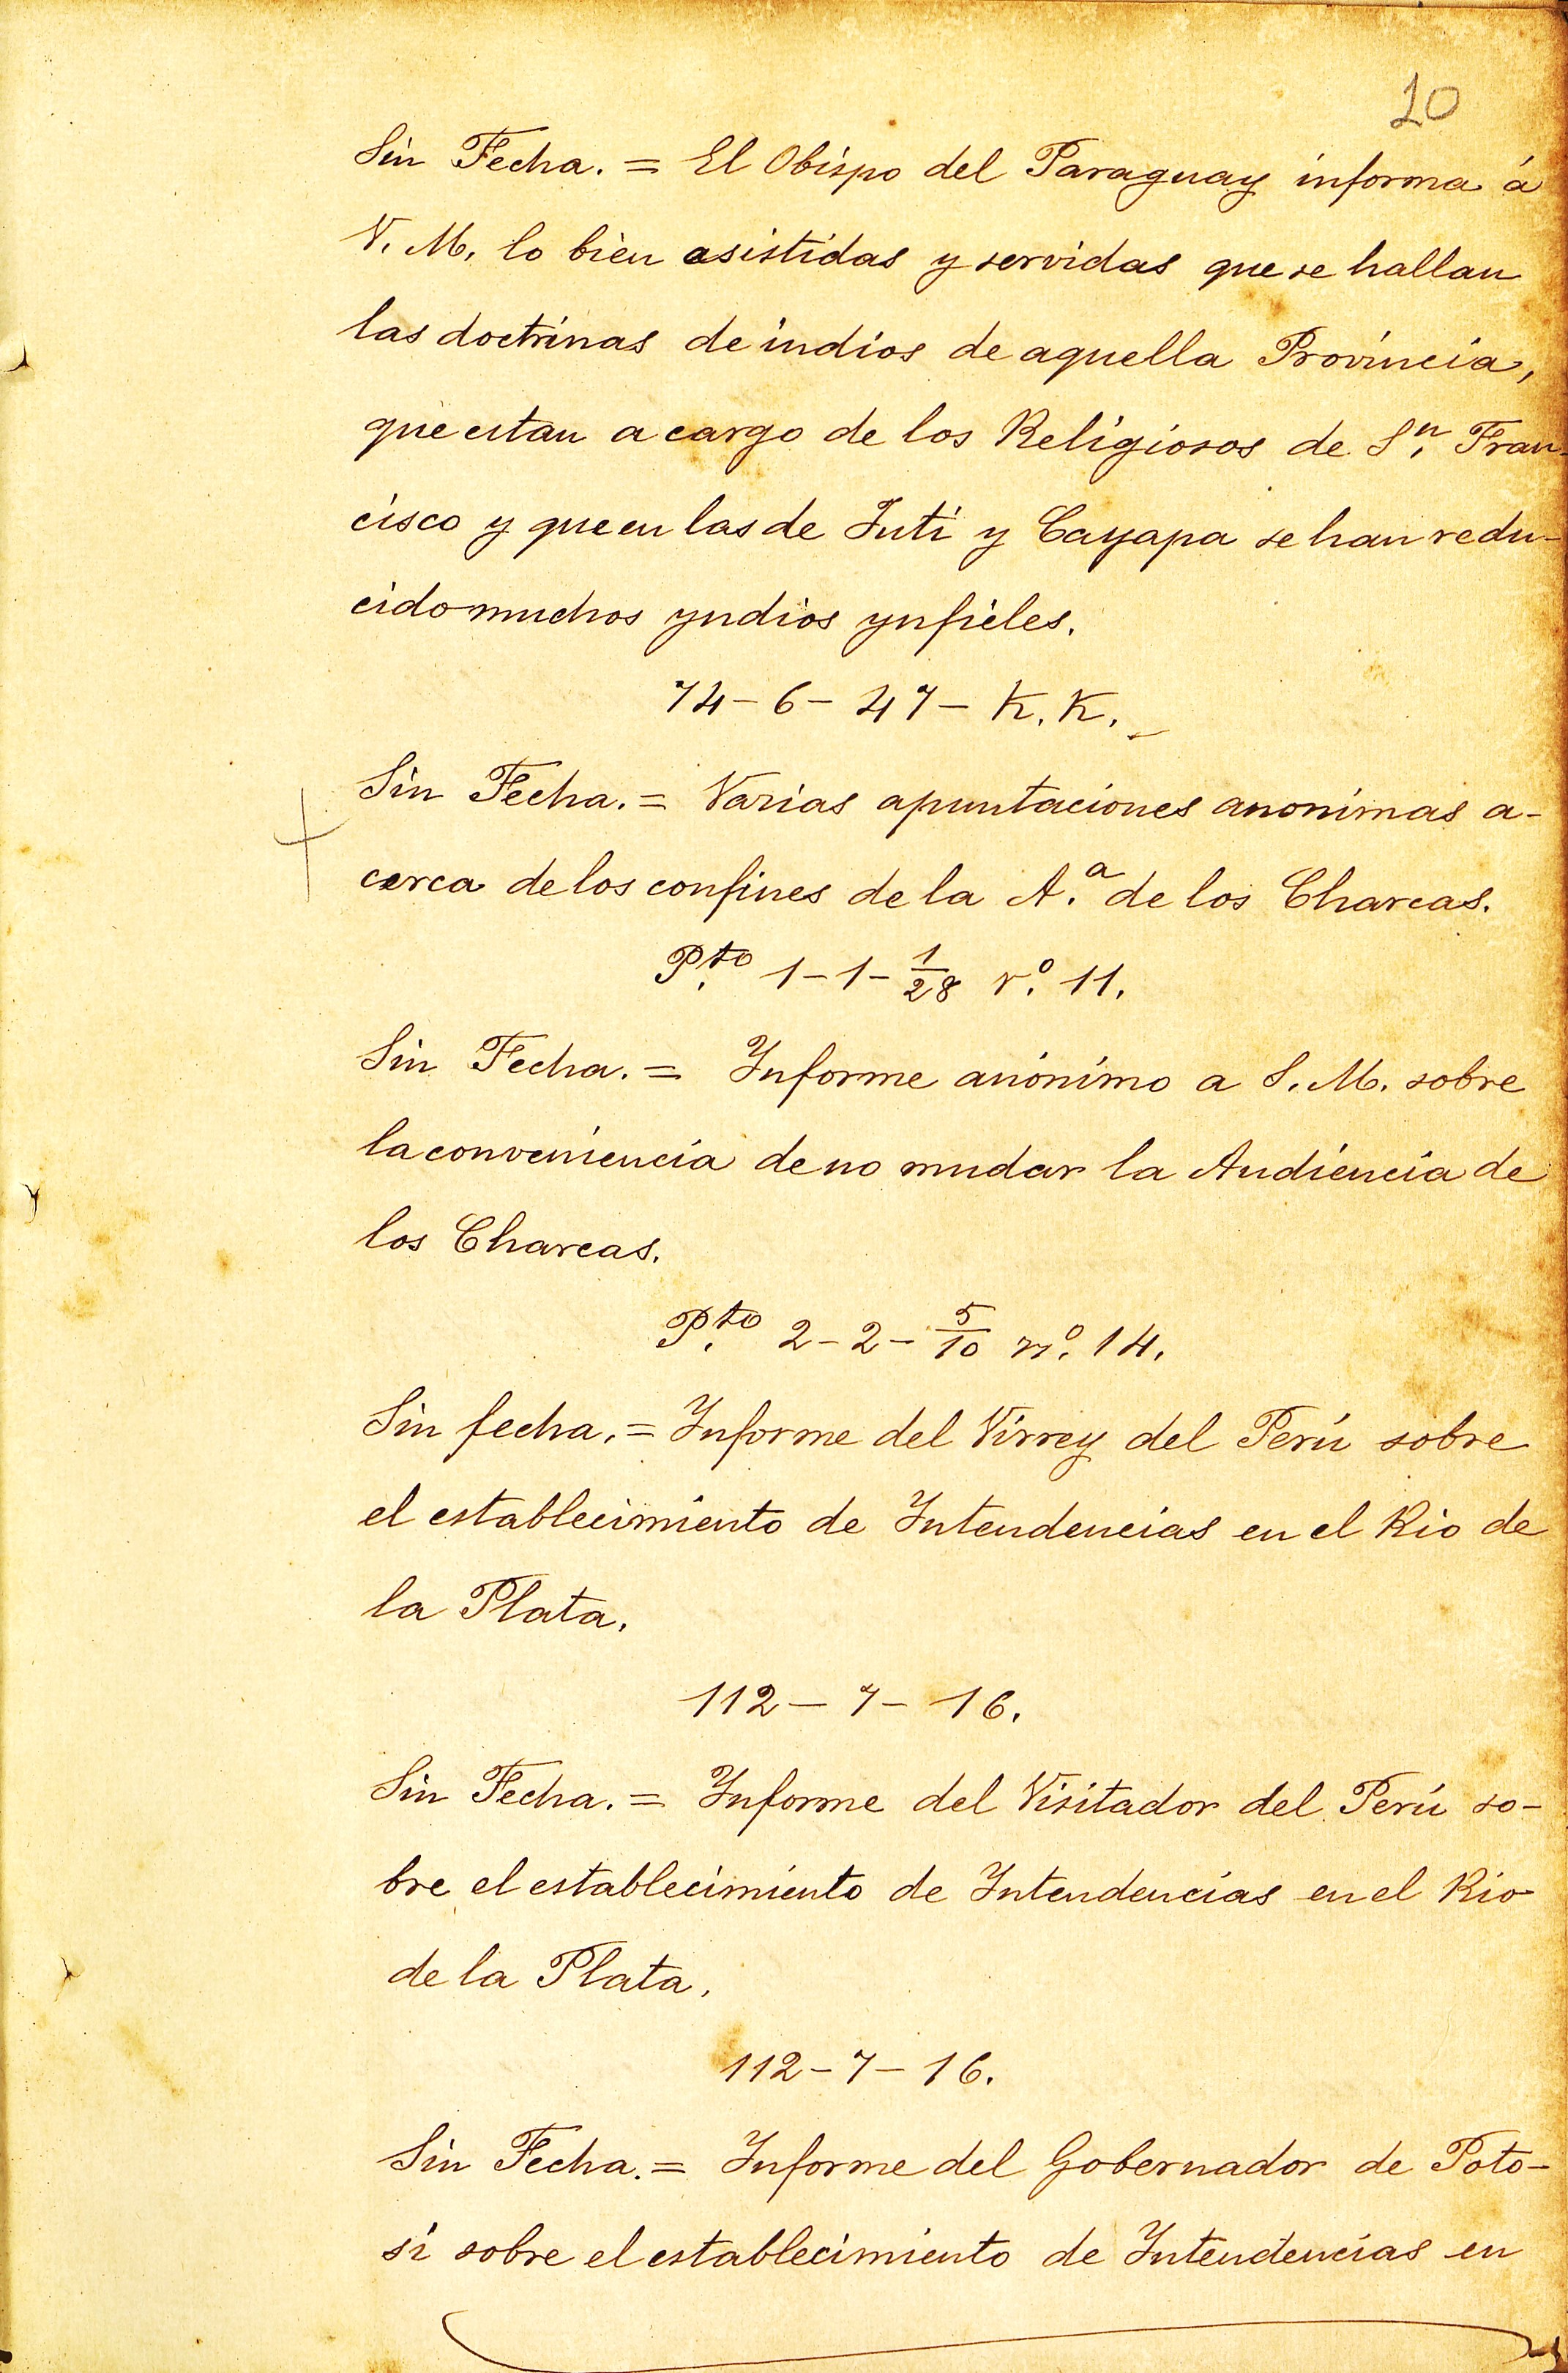 20
Sin Fecha. = El Obispo del Paraguay informa á
V. M. lo bien asistidas y servidas que se hallan
las doctrinas de indios de aquella Provincia,
que estan a cargo de los Religiosos de S.n Fran-
cisco y que en las de Juti y Cayapa se han redu-
cido muchos yndios ynfieles.
74-6-47-K.K.
Sin Fecha. = Varias apuntaciones anonimas a-
cerca de los confines de la A.a de los Charcas.
P.to 1-1-1/28 r.o 11.
Sin Fecha. = Informe anónimo a S. M. sobre
la conveniencia de no mudar la Audiencia de
los Charcas.
P.to 2-2-5/10 n.o 14.
Sin fecha. = Informe del Virrey del Perú sobre
el establecimiento de Intendencias en el Rio de
la Plata.
112-7-16.
Sin Fecha. = Informe del Visitador del Perú so-
bre el establecimiento de Intendencias en el Rio
de la Plata.
112-7-16.
Sin Fecha. = Informe del Gobernador de Poto-
sí sobre el establecimiento de Intendencias en